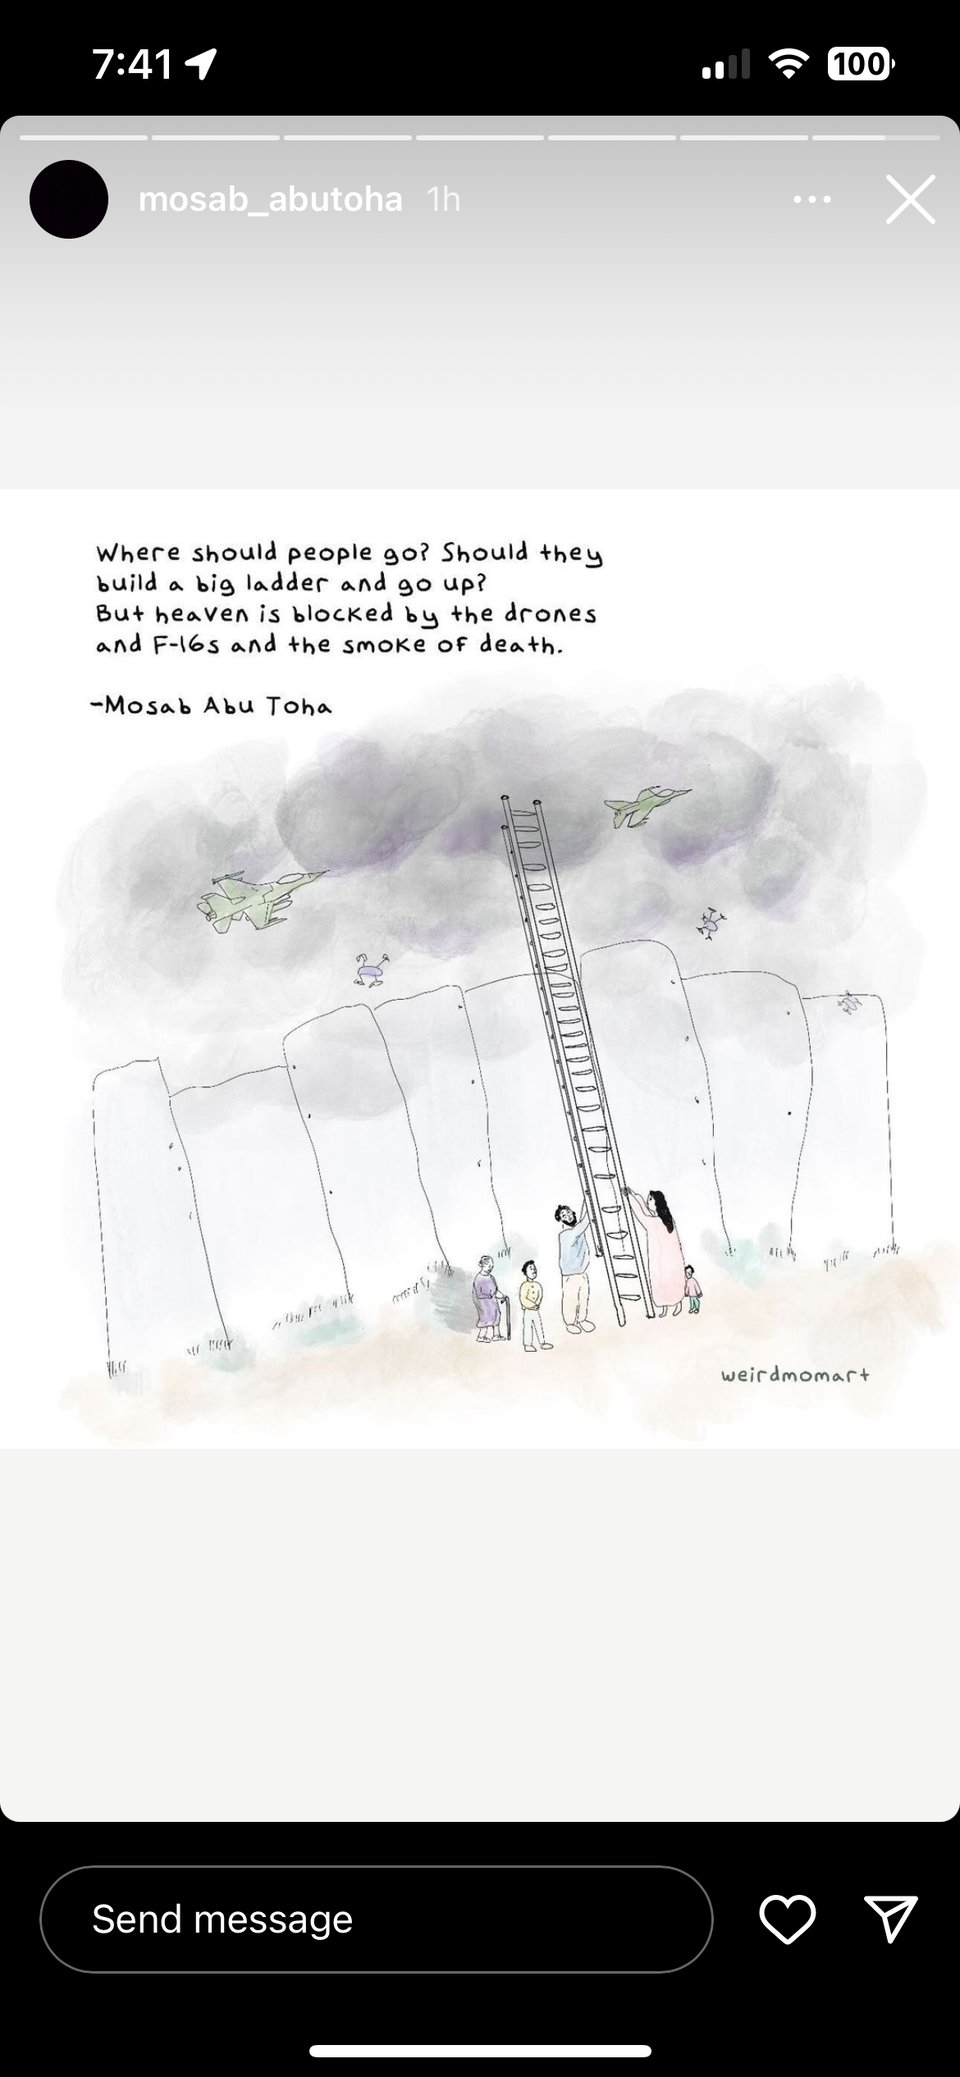 7:41
100
mosab_abutoha 1h
Where should people go? Should they
build a big ladder and go up?
But heaven is blocked by the drones
and F-16s and the smoke of death.
-Mosab Abu Toha
weirdmomart
Send message